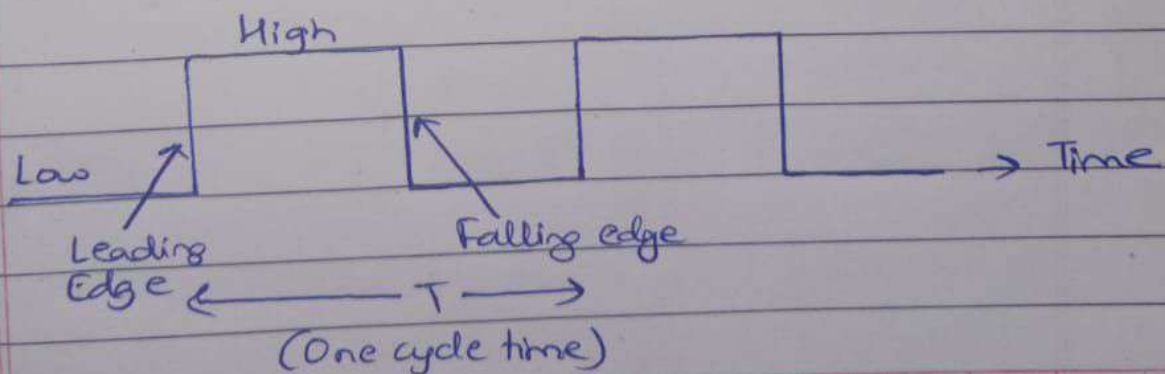 High
Low
Time
Leading
Edge
Falling edge
T
(One cycle time)